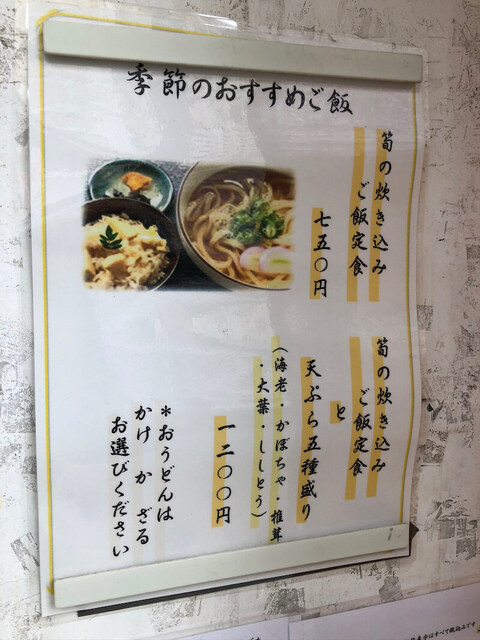 季節のおすすめご飯
筍の炊き込み
ご飯定食
七五〇円
筍の炊き込み
ご飯定食
と
天ぷら五種盛り
(海老・かぼちゃ・椎茸
・大葉・ししとう)
一二〇〇円
*おうどんは
かけ か ざる
お選びください